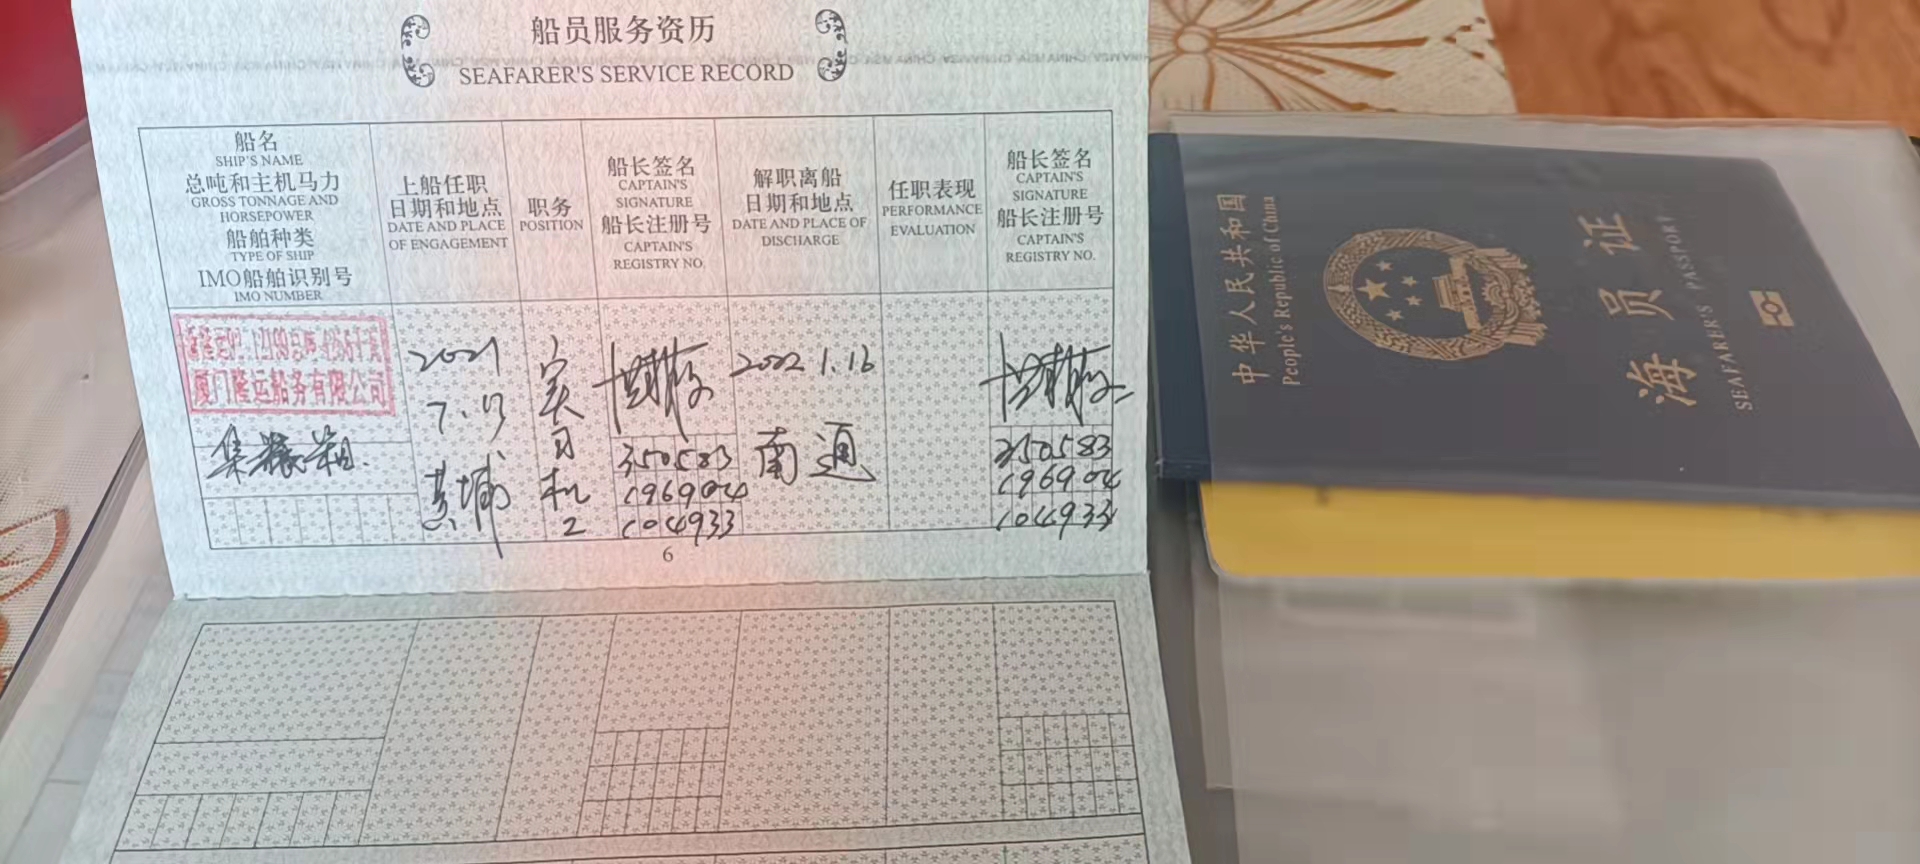 船员服务资历
SEAFARER'S SERVICE RECORD
船名
SHIP'S NAME
总吨和主机马力
GROSS TONNAGE AND
HORSEPOWER
船舶种类
TYPE OF SHIP
IMO船舶识别号
IMO NUMBER
上船任职
日期和地点
DATE AND PLACE
OF ENGAGEMENT
职务
POSITION
船长签名
CAPTAIN'S
SIGNATURE
船长注册号
CAPTAIN'S
REGISTRY NO.
解职离船
日期和地点
DATE AND PLACE OF
DISCHARGE
任职表现
PERFORMANCE
EVALUATION
船长签名
CAPTAIN'S
SIGNATURE
船长注册号
CAPTAIN'S
REGISTRY NO.
厦门隆运船务有限公司
集装箱
2021
黄埔
实
习
机
工
350583
196904
104933
2022 1.16
南通
350583
196904
104933
6
中华人民共和国
People's Republic of China
海员证
SEAFARER'S PASSPORT